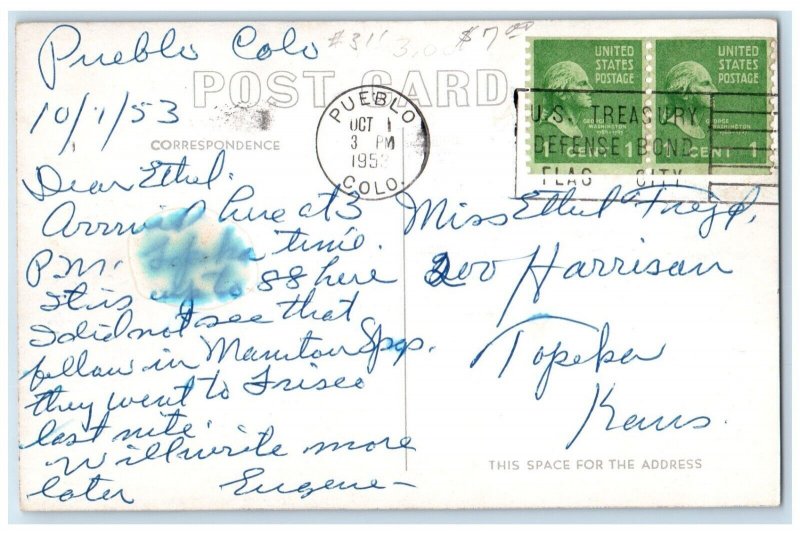 Pueblo Colo
#311 3.00 $7.00
POST CARD
10/1/53
CORRESPONDENCE
PUEBLO
OCT 1
3 PM
1953
COLO.
UNITED STATES POSTAGE
GEORGE WASHINGTON
1 CENT
UNITED STATES POSTAGE
GEORGE WASHINGTON
CENT 1
U.S. TREASURY
DEFENSE BOND
FLAG CITY
Dear Ethel.
Arrived here at 3
P.M. time.
It is up to 88 here
I did not see that
fellow in Manitou Spgs.
they went to Frisco
last nite.
Will write more
later Eugene
Miss Ethel
200 Harrison
Topeka
Kans.
THIS SPACE FOR THE ADDRESS